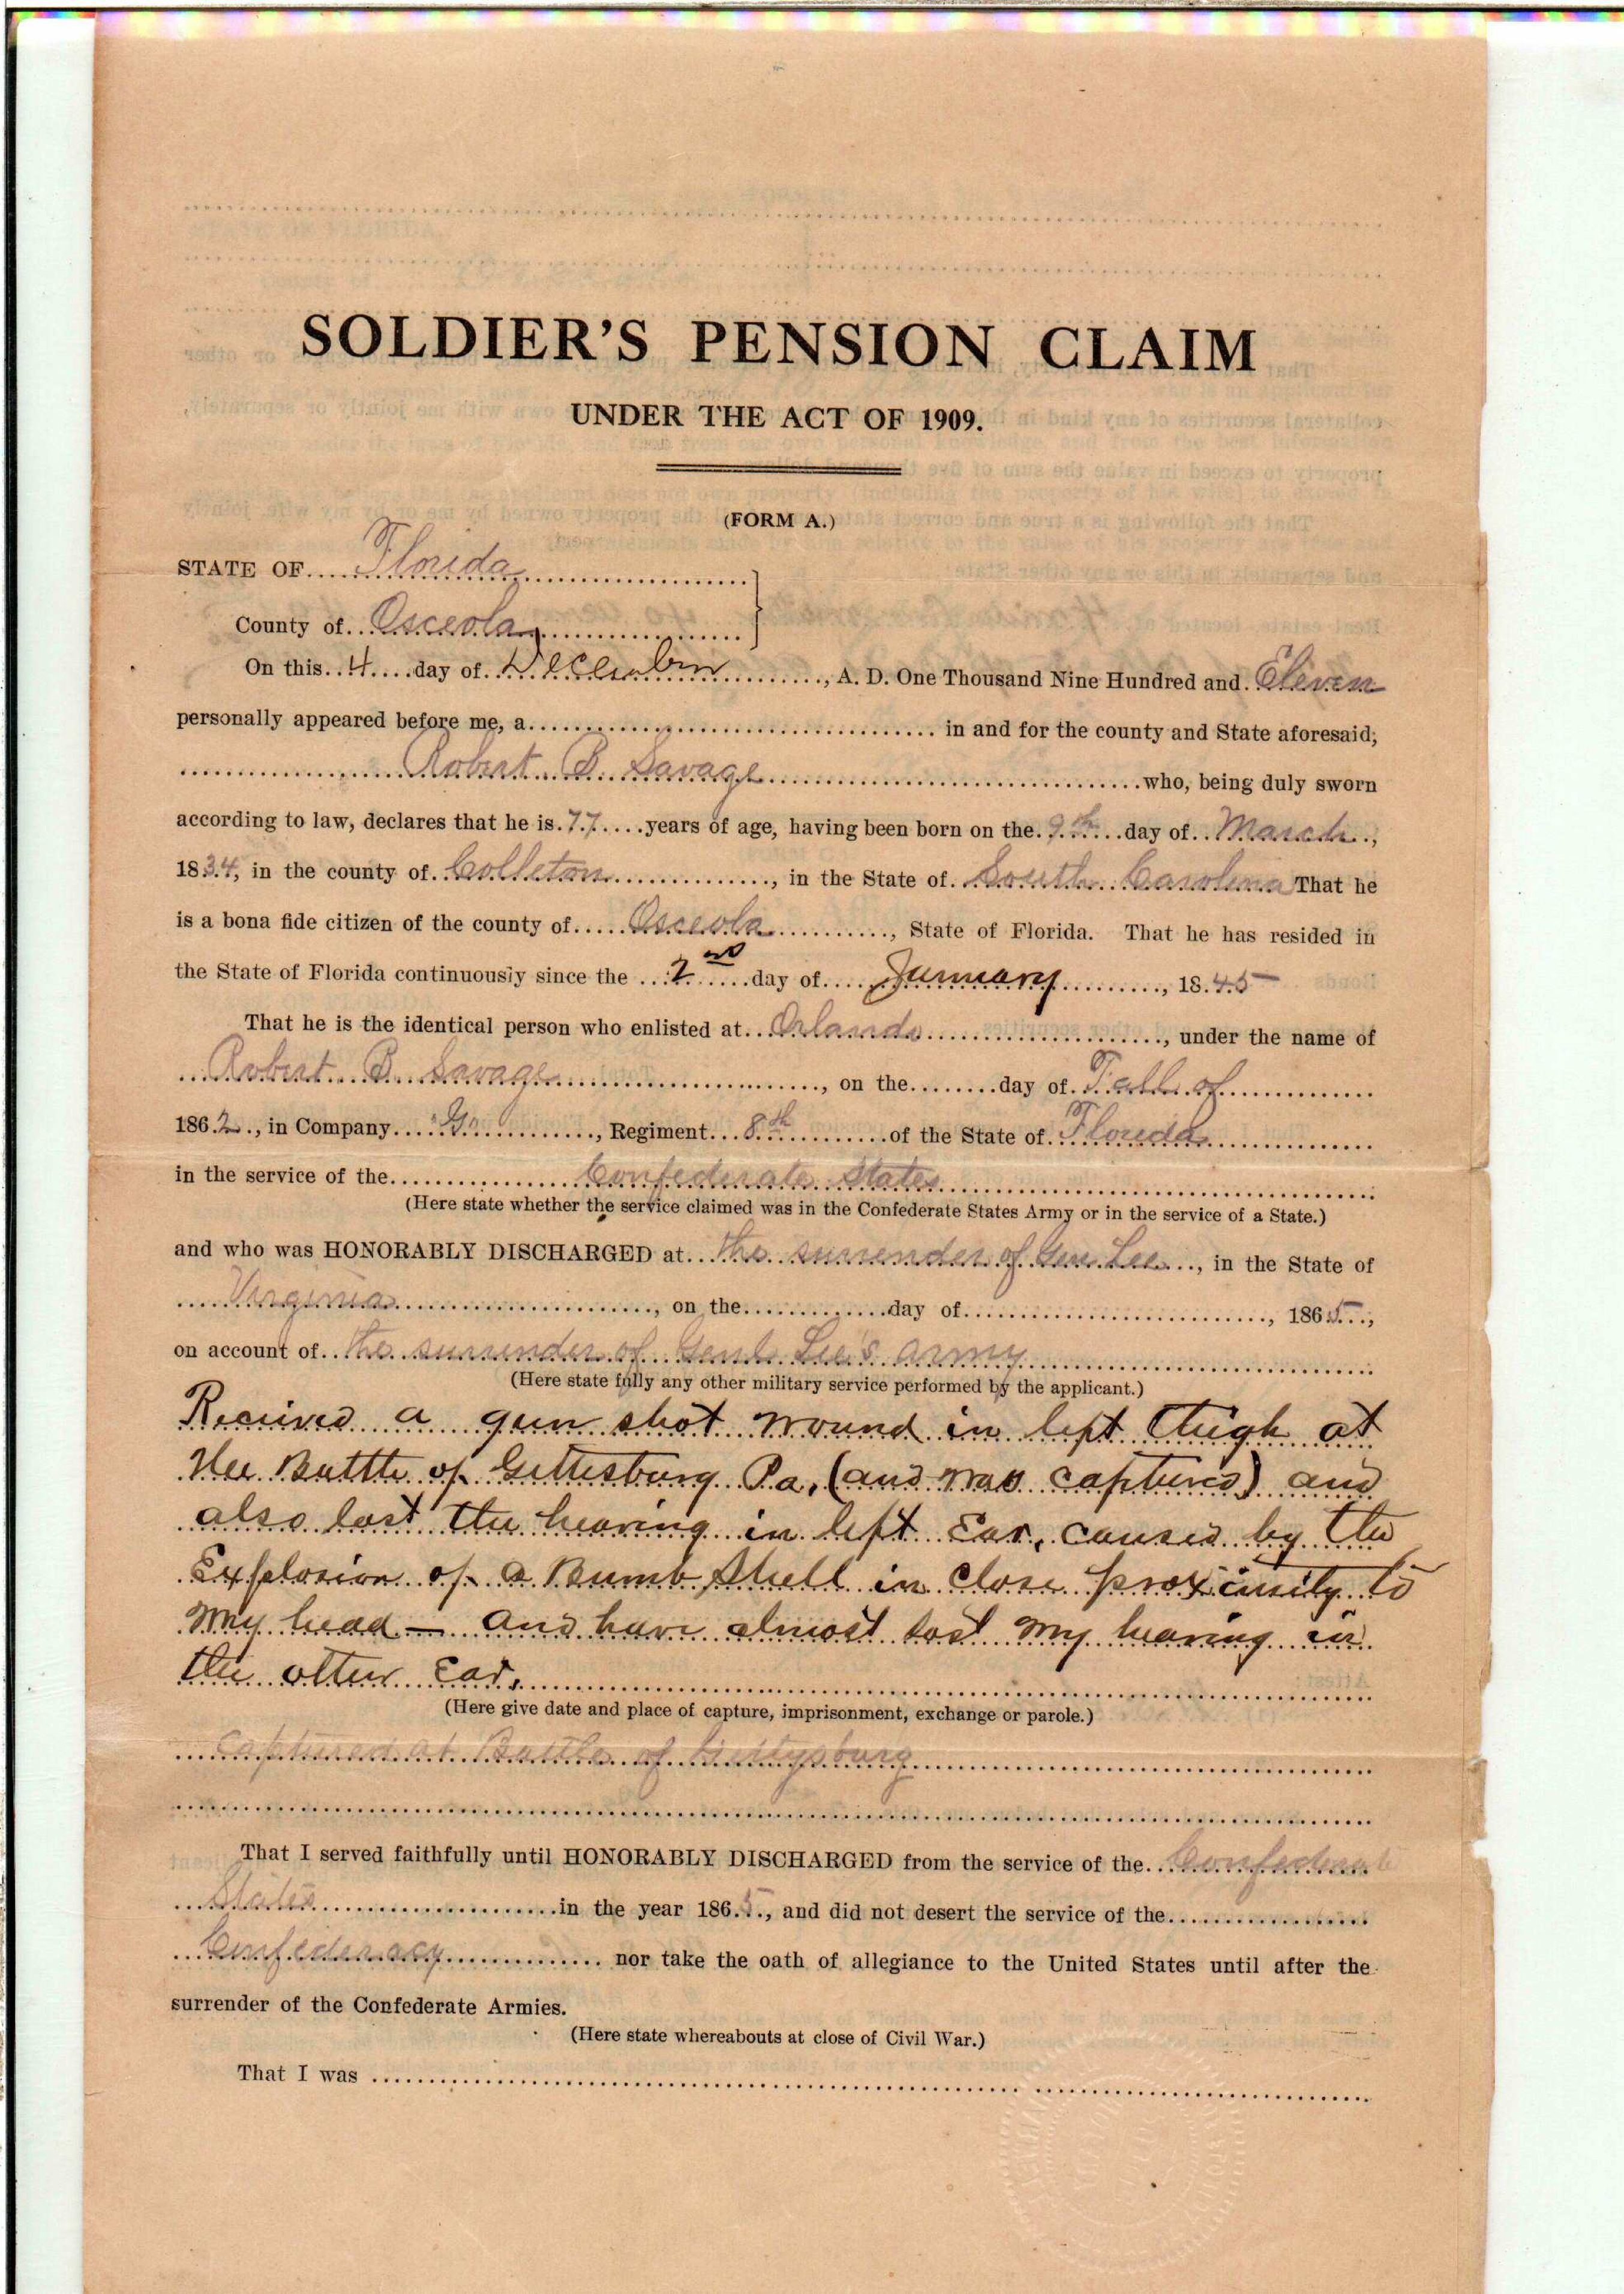 SOLDIER'S PENSION CLAIM
UNDER THE ACT OF 1909.
(FORM A.)
STATE OF Florida
County of Osceola
On this 4 day of December, A. D. One Thousand Nine Hundred and Eleven
personally appeared before me, a in and for the county and State aforesaid;
Robert B. Savage who, being duly sworn
according to law, declares that he is 77 years of age, having been born on the 9th day of March,
1834, in the county of Colleton, in the State of South Carolina That he
is a bona fide citizen of the county of Osceola, State of Florida. That he has resided in
the State of Florida continuously since the 2nd day of January, 1845
That he is the identical person who enlisted at Orlando, under the name of
Robert B. Savage, on the day of Fall of
1862, in Company "G", Regiment 8th of the State of Florida
in the service of the Confederate States
(Here state whether the service claimed was in the Confederate States Army or in the service of a State.)
and who was HONORABLY DISCHARGED at the surrender of Gen Lee, in the State of
Virginia, on the day of, 1865,
on account of the surrender of Genl Lee's army
(Here state fully any other military service performed by the applicant.)
Received a gun shot wound in left thigh at
the Battle of Gettesburg Pa, (and was captured) and
also lost the hearing in left Ear, caused by the
Explosion of a Bumb Shell in close proximity to
my head — and have almost lost my hearing in
the other Ear.
(Here give date and place of capture, imprisonment, exchange or parole.)
Captured at Battle of Gettysburg
That I served faithfully until HONORABLY DISCHARGED from the service of the Confederate
States in the year 1865, and did not desert the service of the
Confederacy nor take the oath of allegiance to the United States until after the
surrender of the Confederate Armies.
(Here state whereabouts at close of Civil War.)
That I was